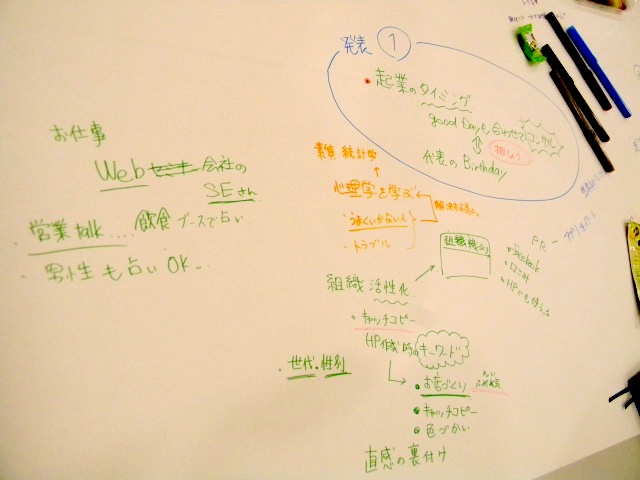 お仕事
Web 会社の
SEさん
営業talk... 飲食ブースで占い
・男性も占いOK..
発表 ①
・起業のタイミング
good Dayも合わせてコンサル
相しょう
代表のBirthday
素質 統計学
心理学を学ぶ
・うまくいかない人
・トラブル
組織
PR
・facebook
・口こみ
・HPでも使える
組織 活性化
・キャッチコピー
HP作成時のキーワード
・世代・性別
・お店づくり
・キャッチコピー
・色づかい
直感の裏付け